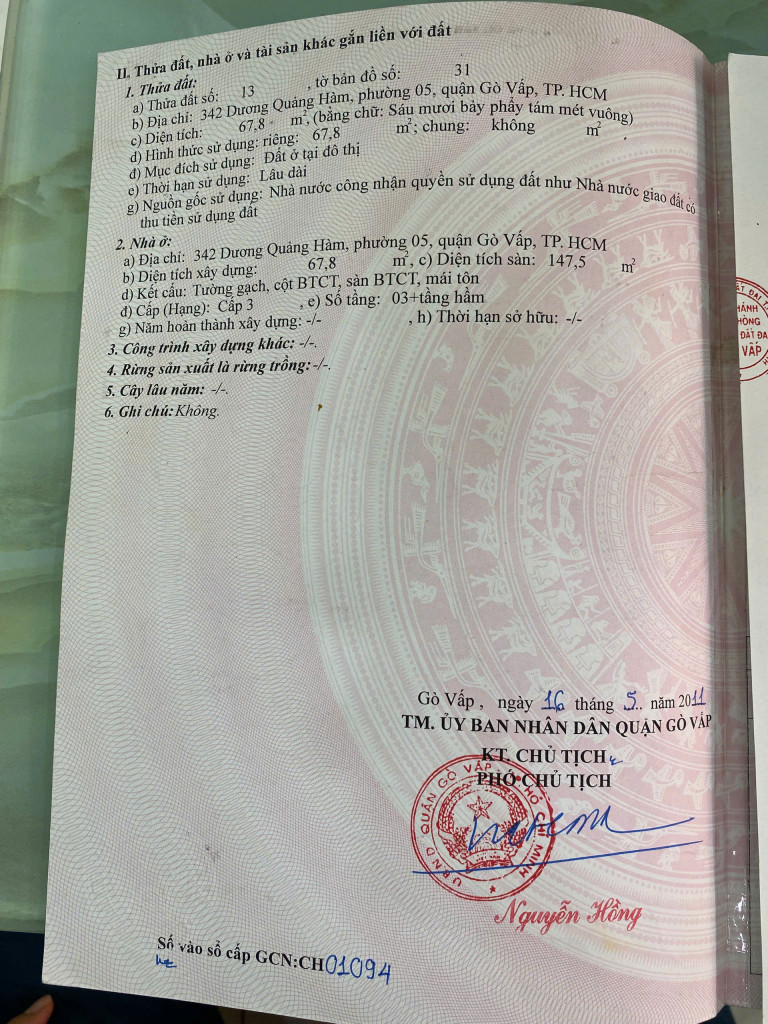 II. Thửa đất, nhà ở và tài sản khác gắn liền với đất
1. Thửa đất:
a) Thửa đất số: 13 , tờ bản đồ số: 31
b) Địa chỉ: 342 Dương Quảng Hàm, phường 05, quận Gò Vấp, TP. HCM
c) Diện tích: 67,8 m², (bằng chữ: Sáu mươi bảy phẩy tám mét vuông)
d) Hình thức sử dụng: riêng: 67,8 m²; chung: không m²
đ) Mục đích sử dụng: Đất ở tại đô thị
e) Thời hạn sử dụng: Lâu dài
g) Nguồn gốc sử dụng: Nhà nước công nhận quyền sử dụng đất như Nhà nước giao đất có
thu tiền sử dụng đất
2. Nhà ở:
a) Địa chỉ: 342 Dương Quảng Hàm, phường 05, quận Gò Vấp, TP. HCM
b) Diện tích xây dựng: 67,8 m², c) Diện tích sàn: 147,5 m²
d) Kết cấu: Tường gạch, cột BTCT, sàn BTCT, mái tôn
đ) Cấp (Hạng): Cấp 3 , e) Số tầng: 03+tầng hầm
g) Năm hoàn thành xây dựng: -/- , h) Thời hạn sở hữu: -/-
3. Công trình xây dựng khác: -/-.
4. Rừng sản xuất là rừng trồng: -/-.
5. Cây lâu năm: -/-.
6. Ghi chú: Không.
ĐẤT ĐAI T
HÁNH
HÒNG
ĐẤT ĐA
VẤP
Gò Vấp , ngày 16 tháng 5.. năm 2011
TM. ỦY BAN NHÂN DÂN QUẬN GÒ VẤP
KT. CHỦ TỊCH
PHÓ CHỦ TỊCH
UBND QUẬN GÒ VẤP HỒ CHÍ MINH
Nguyễn Hồng
Số vào sổ cấp GCN:CH01094